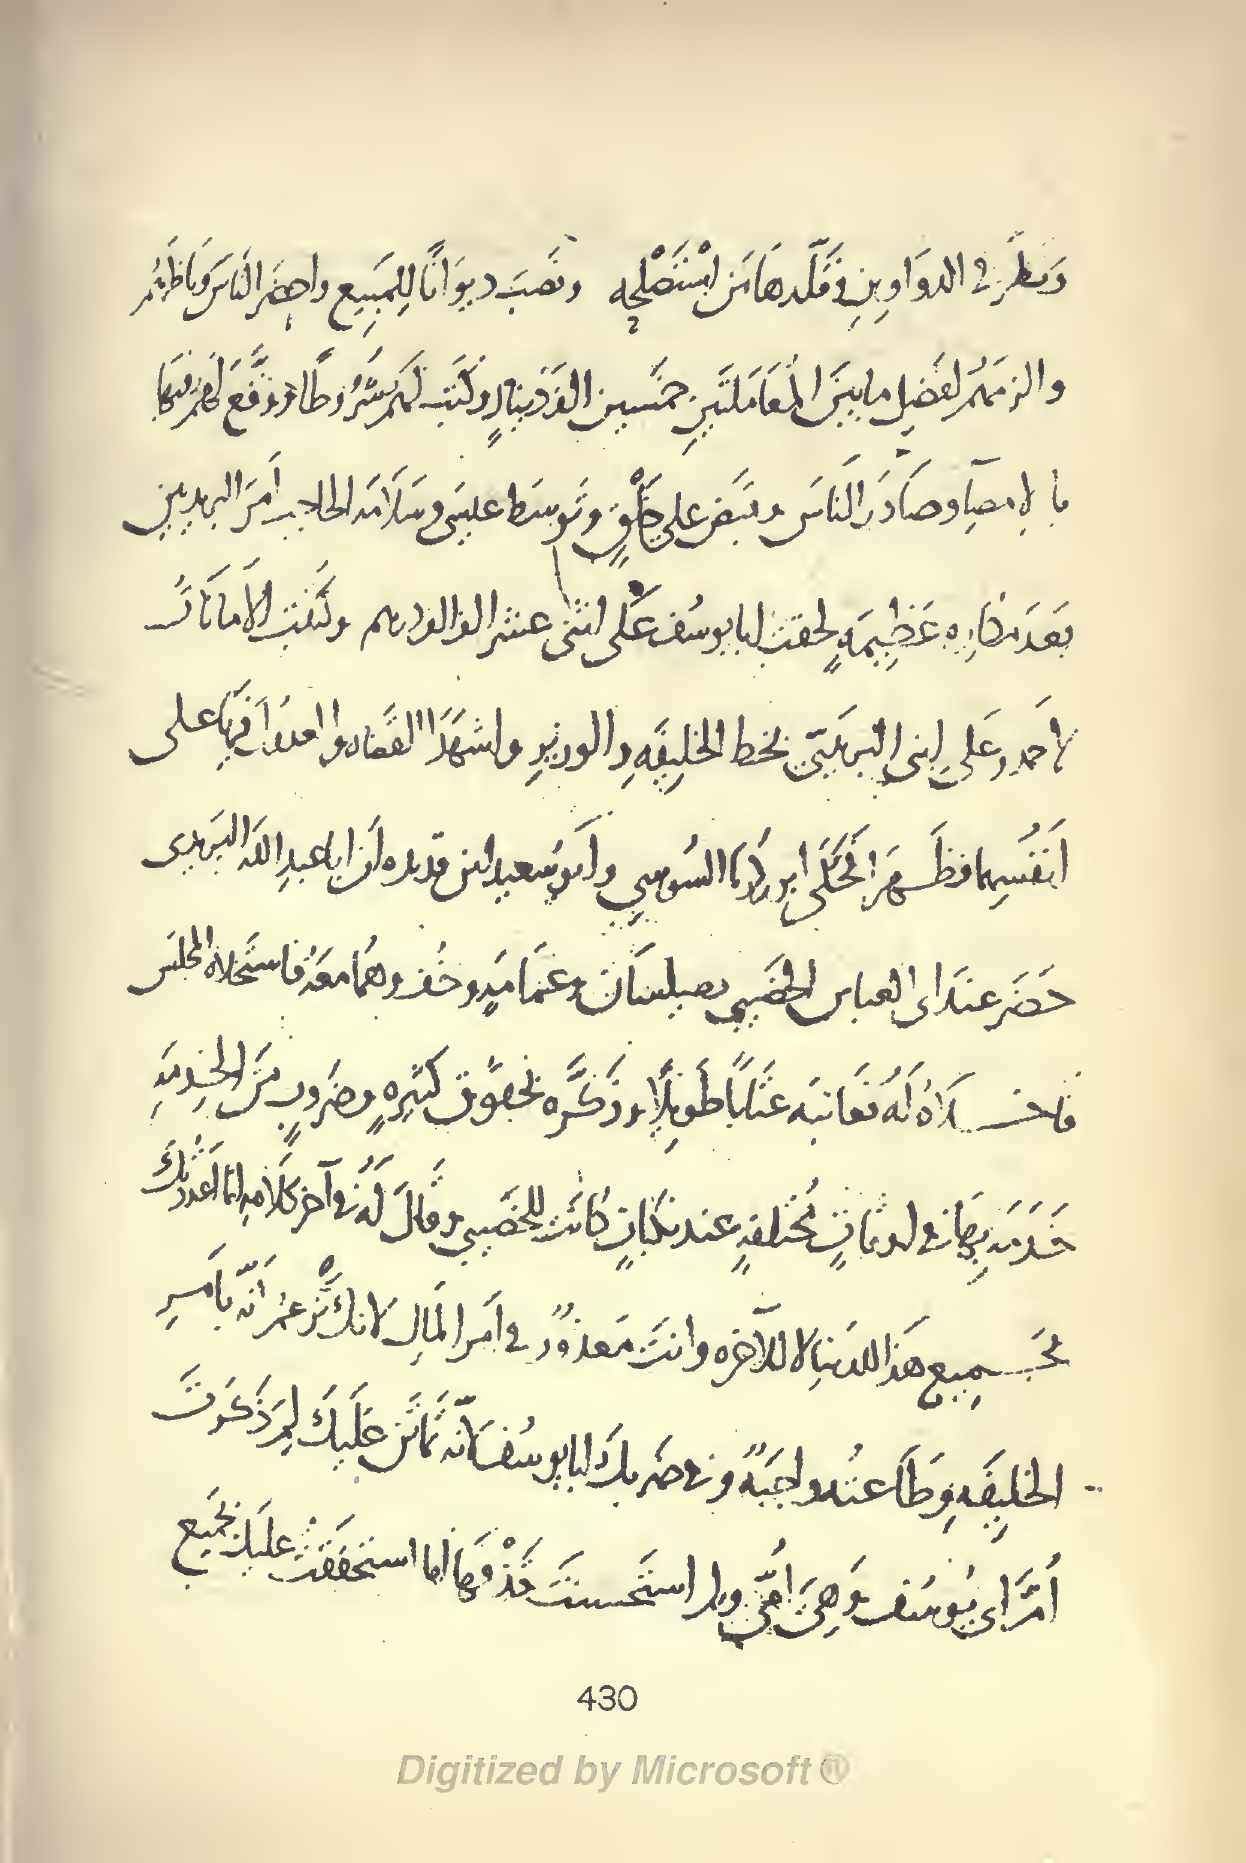 ونظر في الدواوين فقلّدها من استصلحه ونصب ديوانًا للمبيع واحضر الناس وناظرهم
والزمهم لفضل ما بين المعاملتين خمسين الف دينارٍ وكتب لهم شروطًا ووقّع لهم فيها
بالإمضآ وصادر الناس وقبض على خلقٍ وتوسط عليسى وسلامه الحاجب امر البريديين
بعد مكاره عظيمةٍ لحقت ابا يوسف على اثنى عشر الف الف درهم وكتبت الأمانات
لاحمد وعلي ابنى البريديّ بخط الخليفهِ والوزيرِ واشهدا القضاه والعدول فيها على
أنفُسِهما فظهر فحكى ابو زكريا السُوسي وأبو سعيد ابن قديده أن ابا عبد الله البريدى
حضر عند ابى العباس الخصيبي بطيلسان وعمامةٍ وخُف وهُما معهُ فاستخلاه المجلس
فاخلاهُ لهُ فعاتبه عتابًا طويلًا وذكّره بحقوق كثيرهٍ وضروبٍ من الخدمهِ
خدمه بها في اوقاتٍ مُختلفهٍ عند نكباتٍ كانت للخصيبي وقال لَهُ في آخر كلامهِ انا اعذرك
بجميع هذا للدنيا لا للآخره وانت معذورٌ في امر المال لانك تزعم انّه بأمر
الخليفه وطاعتُه واجبهٌ وفي ضربك ابا يوسف لانّه تماتن عليك لِم ذكرت
أُمّ ابى يُوسف وهي أُمّي ولم استحسنت قذفها اما استحققت عليك بجميع
430
Digitized by Microsoft ®